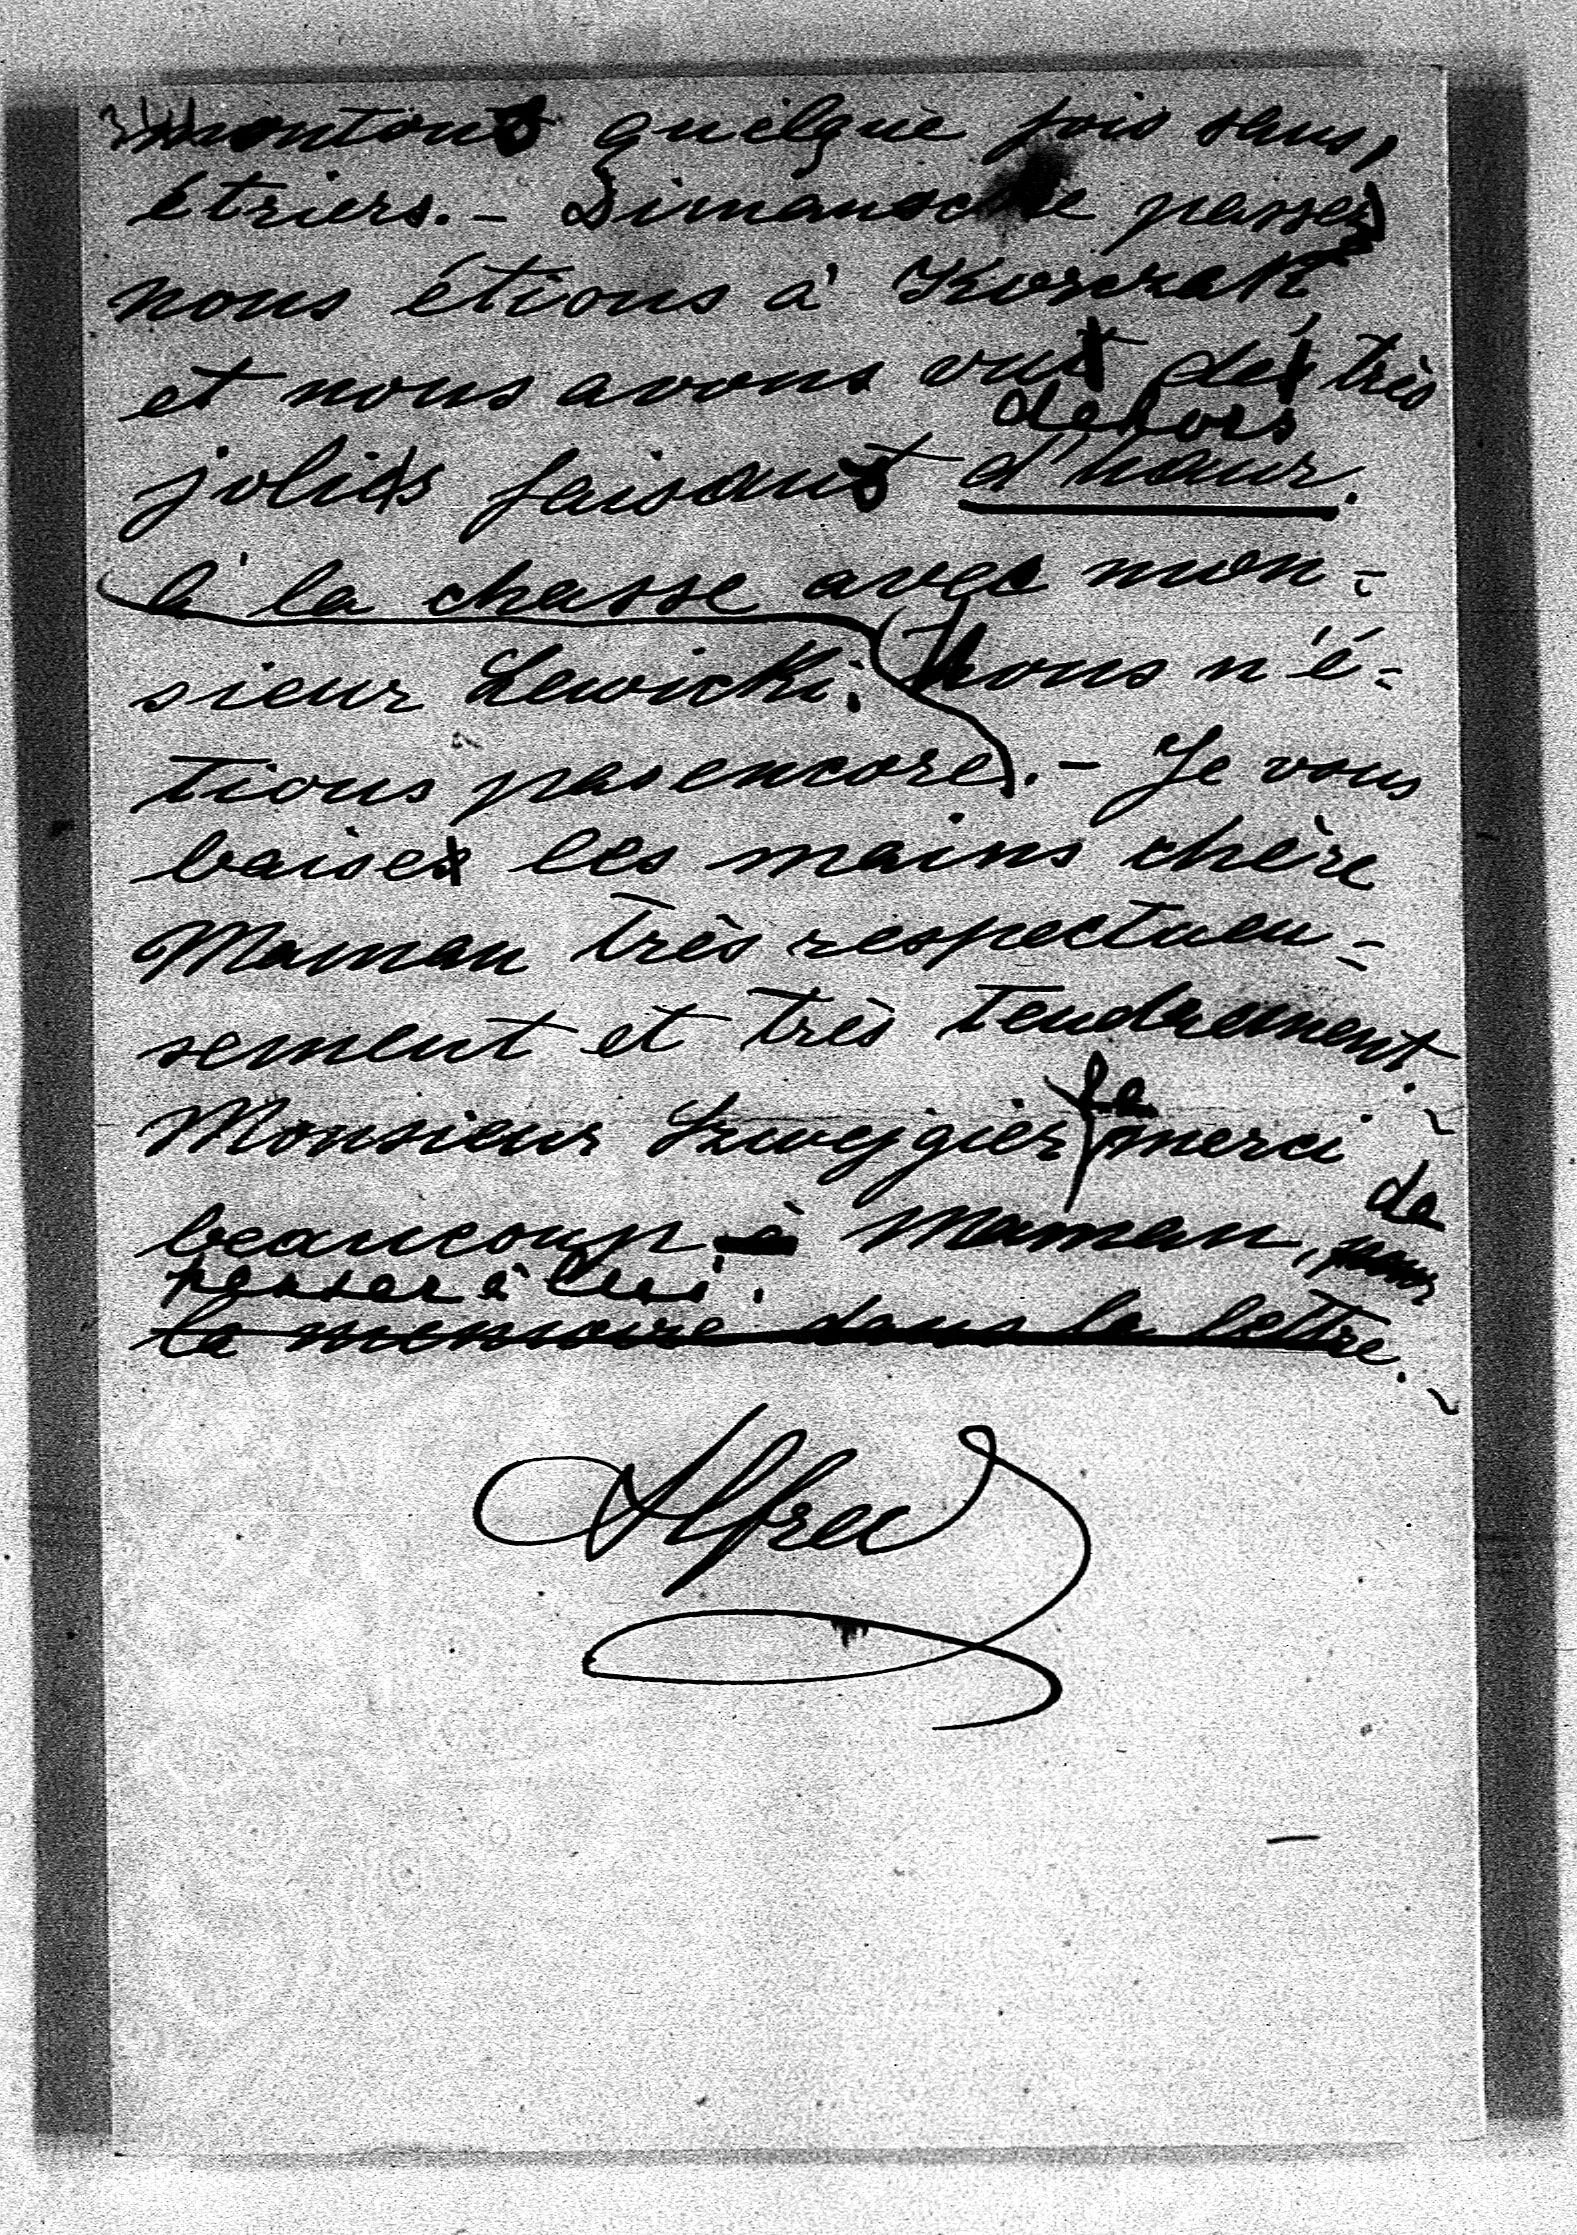 montons quelque fois sans
étriers. - Dimansche passé
nous étions à Korczak
et nous avons vu des très
dehors
jolis faisans d'hour.
à la chasse avec mon-
sieur Lewicki. Nous n'é-
tions pas encore. - Je vous
baise les mains chère
Maman très respectueu-
sement et très tendrement.
Monsieur merci
de
beaucoup à Maman, pour
penser à lui.
la memoire dans la lettre.
Alfred